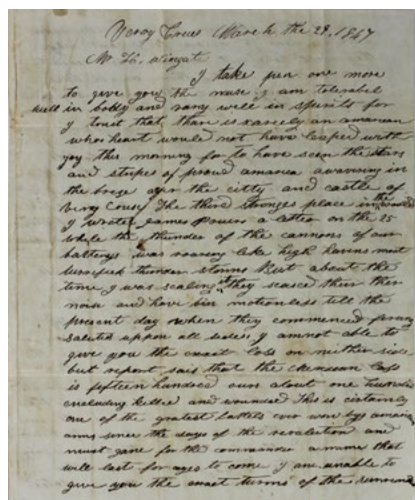 Verry Cruse March the 29, 1847
Mr. H. Wingate
I take pen one more
to give you the nuse I am tolerabel
well in boddy and vary well in spirits for
I trust that thare is scarcely an amarican
whos heart would not have leaped with
joy this morning for to have seen the stars
and stripes of proud amarica awaving in
the brese over the citty and castle of
very Cruse The third stronges place in the world
I wrote James Powers a letter on the 25
while the thunder of the cannons of our
batterys was roaring like high havins most
terrifick thunder storms But about the
time I was scaling it they seased their
noise and have bin motionless till the
present day when they commenced firing
salutes uppon all sides I am not able to
give you the exact loss on neither side
but report sais that the Mexican loss
is fifteen hundred ours about one hundred
including killed and wounded This is certainly
one of the gratest battels ever won by amarican
arms since the days of the revalution and
must gane for the commander a name that
will last for ages to come I am unable to
give you the exact terms of the surrender